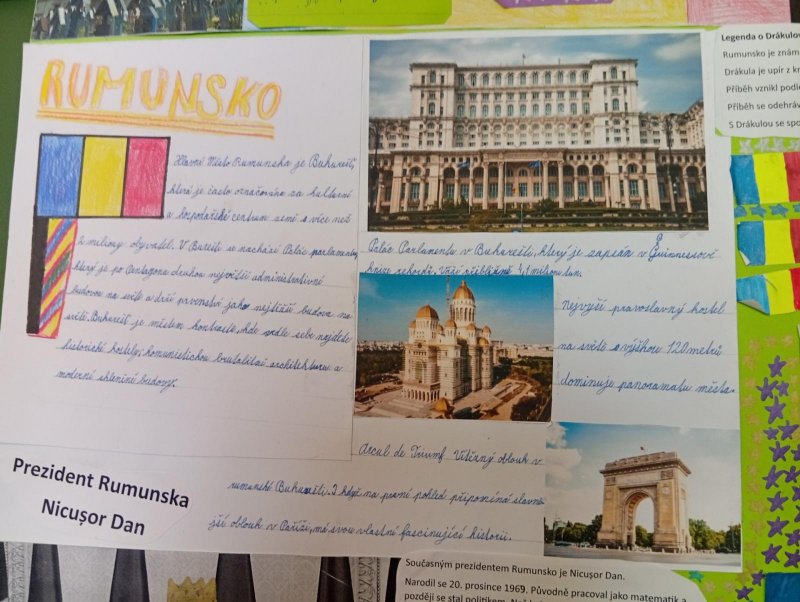 RUMUNSKO
Hlavní Město Rumunska je Bukurešť,
která je často označována za kulturní
a hospodářské centrum země s více než
2 miliony obyvatel. V Burešti se nachází Palác parlamentu,
který je po Pentagonu druhou největší administrativní
budovou na světě a drží prvenství jako nejtěžší budova na
světě. Bukurešť je městem kontrastů, kde vedle sebe najdete
historické kostely, komunistickou brutalitní architekturu a
moderní skleněné budovy.
Palác Parlamentu v Bukurešti, který je zapsán v Guinnessově
knize rekordů. Váží přibližně 4,1 milionu tun.
Nejvyší pravoslavný kostel
na světě s výškou 120 metrů
dominuje panoramatu města.
Arcul de Triumf Vítězný oblouk v
rumunské Bukurešti. I když na první pohled připomíná slavně
jší oblouk v Paříži, má svou vlastní fascinující historii.
Prezident Rumunska
Nicușor Dan
Legenda o Drákulov
Rumunsko je znám
Drákula je upír z kr
Příběh vznikl podle
Příběh se odehráv
S Drákulou se spo
Současným prezidentem Rumunsko je Nicușor Dan.
Narodil se 20. prosince 1969, Původně pracoval jako matematik a
později se stal politikem.